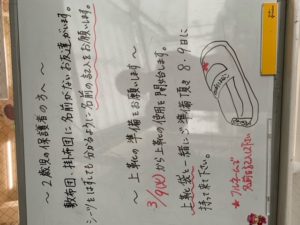 ～2歳児の保護者の方へ～
敷布団・掛布団に名前がないお友達がいます。
シーツをはずしても分かるように名前の記入をお願いします。
～上靴の準備をお願いします～
3/9(火)から上靴の使用を開始します。
上靴袋と一緒にご準備頂き8・9日に
持って来て下さい。
★フルネームで
名前を記入ください